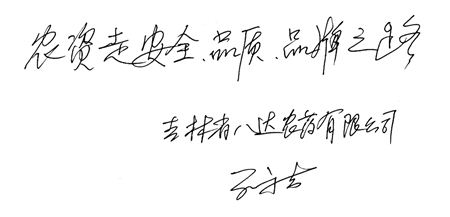 农资走安全、品质、品牌之路
吉林省八达农药有限公司